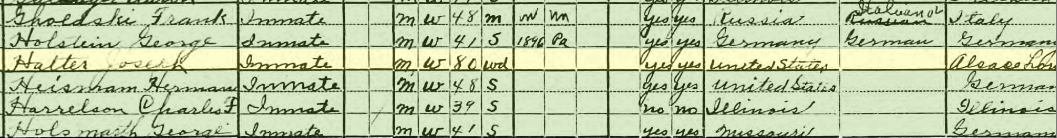 Gholdski Frank Inmate m w 48 m un un Yes Yes Russia Russian Italy
Holstein George Inmate m w 41 S 1896 Pa yes yes Germany German German
Halter Joseph Inmate m w 80 wd Yes Yes United States Alsace Lor
Heismann Herman Inmate m w 48 S Yes Yes United States German
Harrelson Charles F Inmate m w 39 S no no Illinois Illinois
George Inmate m w 41 S yes yes Missouri German